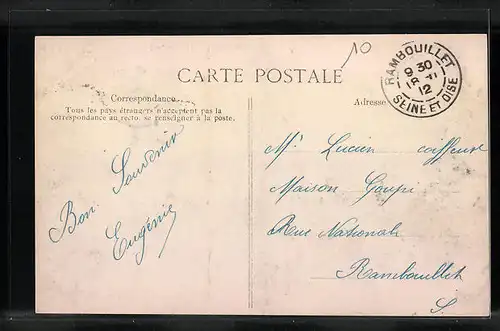 10
CARTE POSTALE
RAMBOUILLET
9 30
18 -11
12
SEINE ET OISE
Correspondance
Tous les pays étrangers n'acceptent pas la
correspondance au recto. se renseigner à la poste.
Adresse
Bon Souvenir
Eugénie
Mr Lucien coiffeur
Maison Goupi
Rue Nationale
Rambouillet
S.